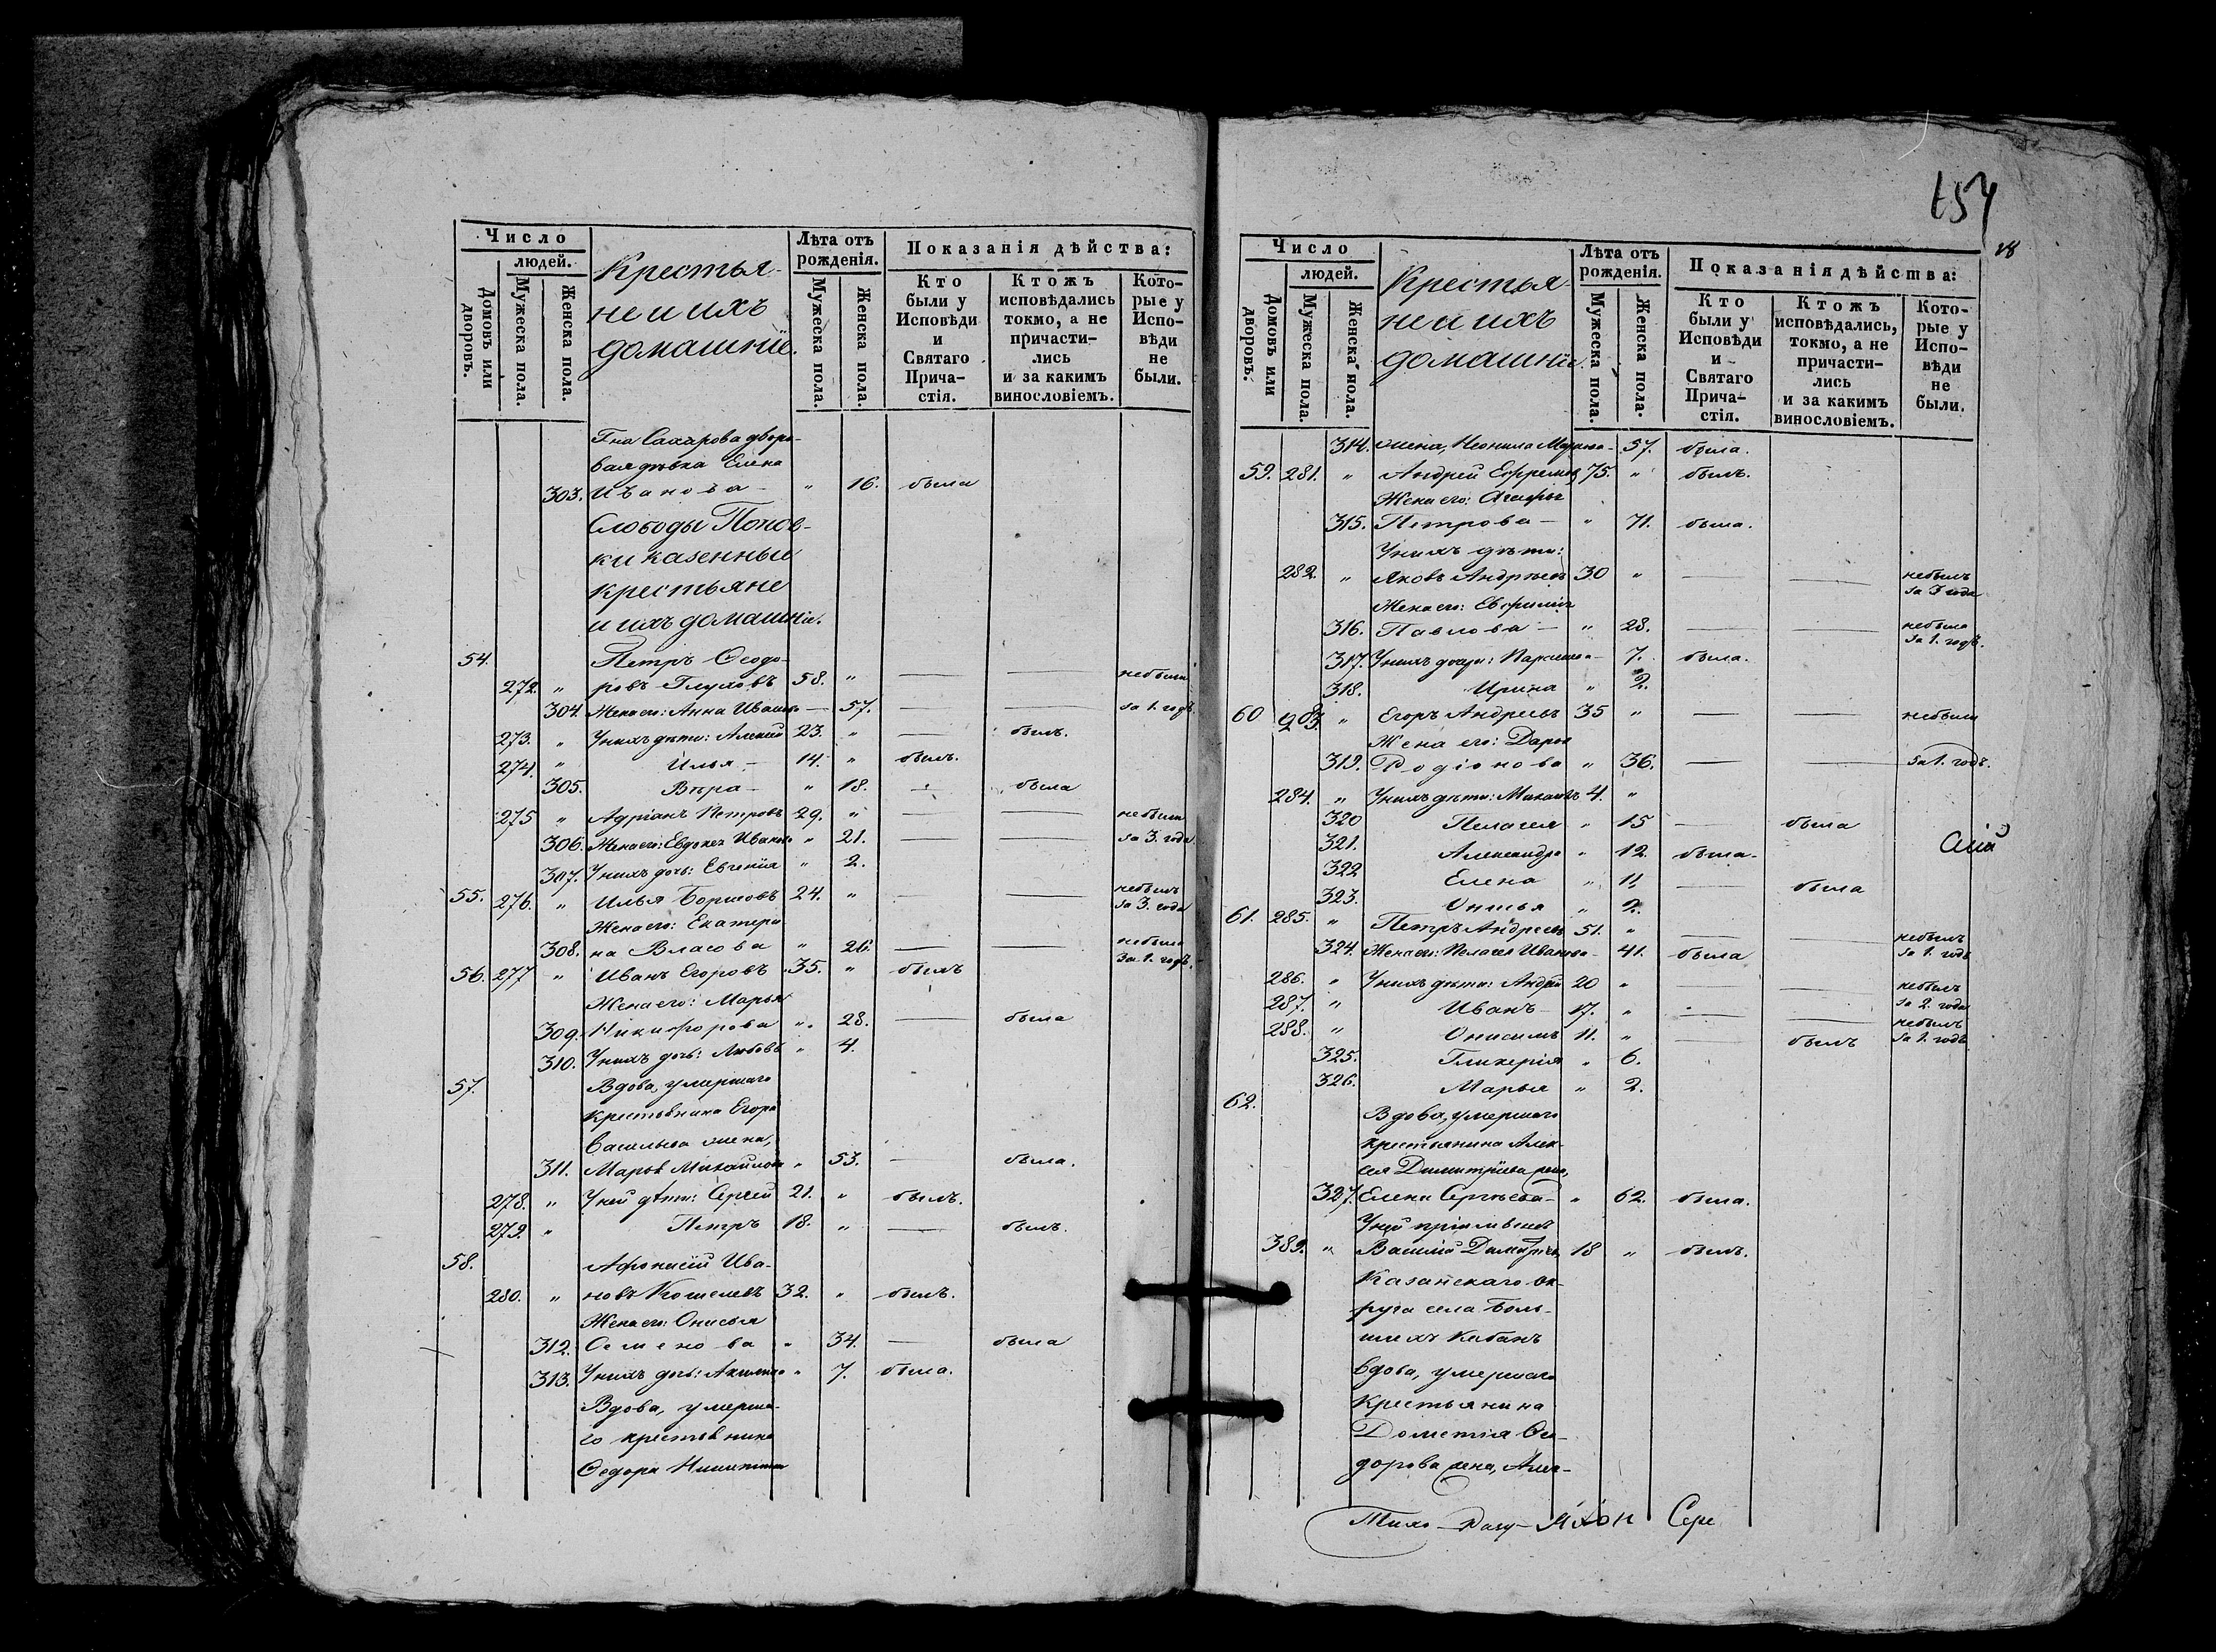 Число
людей.
Домовъ или дворовъ.
Мужеска пола.
Женска пола.
Крестья-
не и ихъ
домашніе.
Лѣта отъ рожденія.
Мужеска пола.
Женска пола.
Показанія дѣйства:
Кто были у Исповѣди и Святаго Прича-стія.
Ктожъ исповѣдались токмо, а не причасти-лись и за какимъ винословіемъ.
Кото-рые у Испо-вѣди не были.
Гна Сахарова дворо-
вая дѣвка Елена
303. Иванова - " 16. была
Слободы Попов-
ки казенные
крестьяне
и ихъ домашніе.
54. Петръ Ѳеодо-
272. " ровъ Глуховъ 58. " — — небыли
304. Жена его: Анна Иванов — 57. — — за 1. годъ
273. " У нихъ дѣти: Алексѣй 23. " — былъ.
274. " Илья - 14. " былъ.
305. Вѣра - " 18. - была
275 " Адріанъ Петровъ 29. " — — небыли
306. Жена его: Евдокея Иванов " 21. — — за 3. года
307. У нихъ дочь: Евгенія " 2.
55. 276. " Илья Борисовъ 24. " — — небылъ за 3. года
Жена его: Екатери
308. на Власова " 26. — — небыла за 1. годъ.
56. 277 " Иванъ Егоровъ 35. " былъ
Жена его: Марья
309. Никифорова " 28. — была
310. У нихъ дочь: Любовь " 4.
57. Вдова, умершаго
крестьянина Егора
Васильева жена,
311. Марья Михайлова " 53. — была.
278. " У ней дѣти: Сергей 21. " былъ.
279. " Петръ 18. " — былъ.
58. Афонасій Ива-
280. " новъ Кошелевъ 32. " былъ.
Жена его: Онисья
312. Семенова " 34. — была
313. У нихъ дочь: Акилина " 7. была.
Вдова, умерша-
го крестьянина
Ѳедора Никитина
154
18
Число
людей.
Домовъ или дворовъ.
Мужеска пола.
Женска пола.
Крестья-
не и ихъ
домашніе.
Лѣта отъ рожденія.
Мужеска пола.
Женска пола.
Показанія дѣйства:
Кто были у Исповѣди и Святаго Прича-стія.
Ктожъ исповѣдались, токмо, а не причасти-лись и за какимъ винословіемъ.
Кото-рые у Испо-вѣди не были.
314. жена, Неонила - 57. была.
59. 281. " Андрей Ефремов 75. " былъ.
Жена его: Агафья
315. Петрова - " 71. была.
У нихъ дѣти:
282. " Яковъ Андреевъ 30 " — — небылъ за 3 года
Жена его: Евфимія
316. Павлова - " 28. — — небыла за 1. годъ.
317. У нихъ дочери: - 7. была.
318. Ирина " 2.
60 283. " Егоръ Андреевъ 35 " — — небыли
Жена его: Дарья
319. Родіонова " 36. — — за 1. годъ.
284. " У нихъ дѣти: Михаилъ 4. "
320 Пелагея " 15 — была
321. Александра " 12. была.
322 Елена " 11 — была
323. " 2.
61. 285. " Петръ Андреевъ 51. " — — небылъ за 1. годъ
324. Жена его: Пелагея Иванова - 41. была
286. " У нихъ дѣти: Андрей 20 " — — небылъ за 2. года
287. " Иванъ - 17. " - — небылъ за 1. годъ
288. " Онисимъ 11. " — былъ
325. Гликерія " 6.
326. Марья " 2.
62. Вдова, умершаго
крестьянина Алек-
сея Димитріева жена,
327. Елена Сергѣева - " 62. была.
У ней
389. " Василій 18 " былъ.
Казанскаго ок-
руга села Боль-
шихъ Кабанъ
вдова, умершаго
крестьянина
Дометія Ѳе-
дорова жена, Але-